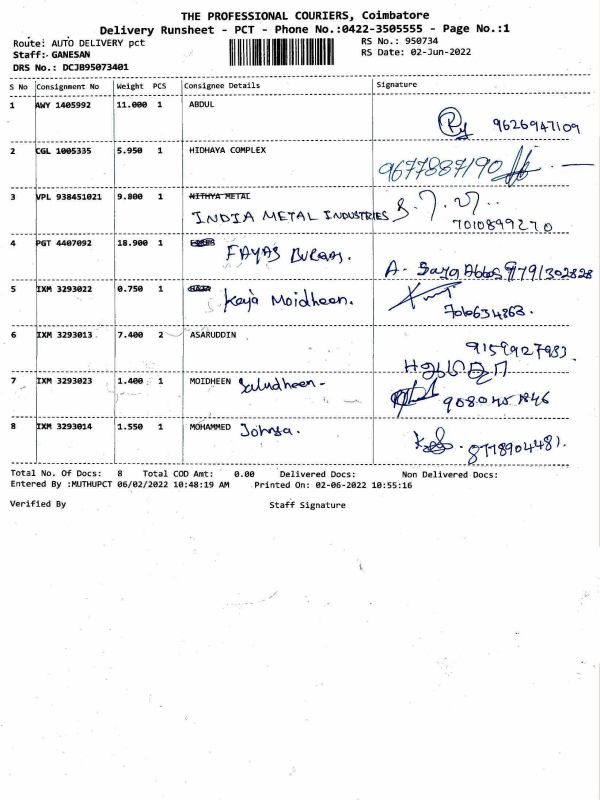 THE PROFESSIONAL COURIERS, Coimbatore
Delivery Runsheet - PCT - Phone No.:0422-3505555 - Page No.:1
Route: AUTO DELIVERY pct RS No.: 950734
Staff:- GANESAN RS Date: 02-Jun-2022
DRS No.: DCJB95073401
S No Consignment No Weight PCS Consignee Details Signature
1 AWY 1405992 11.000 1 ABDUL
9626947109
2 CGL 1005335 5.950 1 HIDHAYA COMPLEX
9677887190
3 VPL 938451021 9.800 1 NITHYA METAL
INDIA METAL INDUSTRIES
7010899270
4 PGT 4407092 18.900 1
FAYAS
A.
5 IXM 3293022 0.750 1
Kaja Moidheen.
6 IXM 3293013 7.400 2 ASARUDDIN
9159927983.
7 IXM 3293023 1.400 1 MOIDHEEN Saludheen-
8 IXM 3293014 1.550 1 MOHAMMED
8778904481.
Total No. Of Docs: 8 Total COD Amt: 0.00 Delivered Docs: Non Delivered Docs:
Entered By :MUTHUPCT 06/02/2022 10:48:19 AM Printed On: 02-06-2022 10:55:16
Verified By Staff Signature